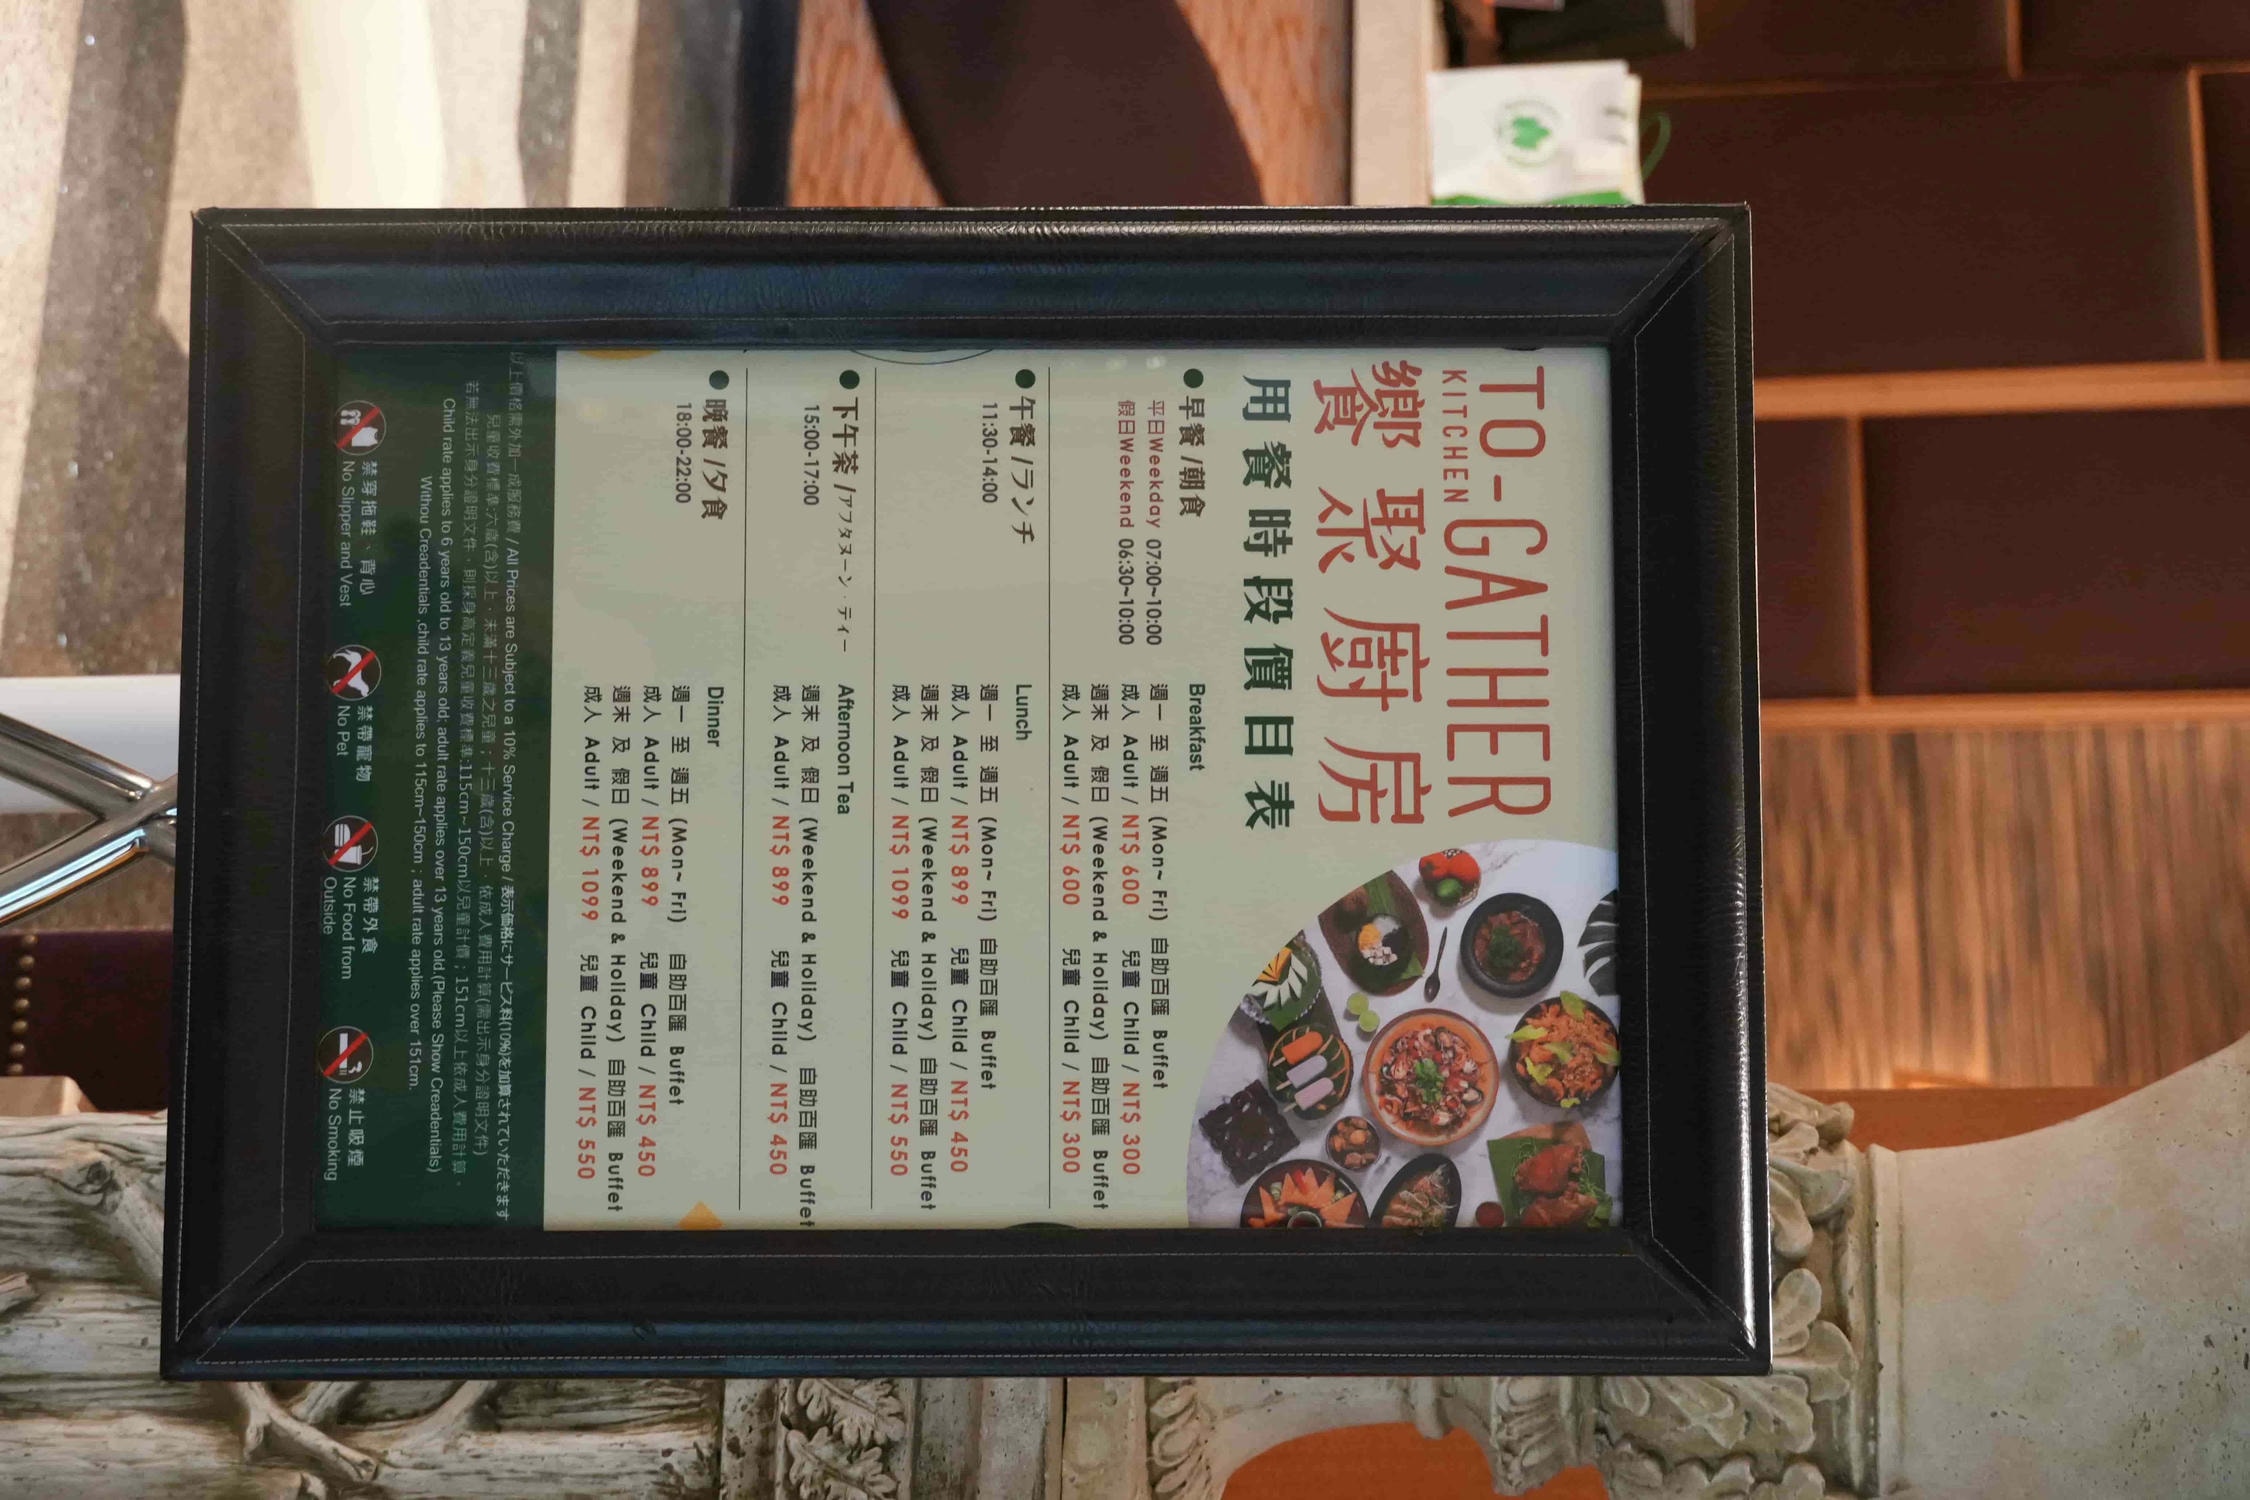 TO-GATHER
KITCHEN
饗聚廚房
用餐時段價目表
●早餐/朝食
平日Weekday 07:00~10:00
假日Weekend 06:30~10:00
Breakfast
週一 至 週五 (Mon~ Fri) 自助百匯 Buffet
成人 Adult / NT$ 600 兒童 Child / NT$ 300
週末 及 假日 (Weekend & Holiday) 自助百匯 Buffet
成人 Adult / NT$ 600 兒童 Child / NT$ 300
●午餐/ランチ
11:30-14:00
Lunch
週一 至 週五 (Mon~ Fri) 自助百匯 Buffet
成人 Adult / NT$ 899 兒童 Child / NT$ 450
週末 及 假日 (Weekend & Holiday) 自助百匯 Buffet
成人 Adult / NT$ 1099 兒童 Child / NT$ 550
●下午茶/アフタヌーン・ティー
15:00-17:00
Afternoon Tea
週末 及 假日 (Weekend & Holiday) 自助百匯 Buffet
成人 Adult / NT$ 899 兒童 Child / NT$ 450
●晚餐/夕食
18:00-22:00
Dinner
週一 至 週五 (Mon~ Fri) 自助百匯 Buffet
成人 Adult / NT$ 899 兒童 Child / NT$ 450
週末 及 假日 (Weekend & Holiday) 自助百匯 Buffet
成人 Adult / NT$ 1099 兒童 Child / NT$ 550
以上價格需外加一成服務費 / All Prices are Subject to a 10% Service Charge / 表示価格にサービス料(10%)を加算されていただきます
兒童收費標準:六歲(含)以上，未滿十三歲之兒童；十三歲(含)以上，依成人費用計算(需出示身分證明文件)
若無法出示身分證明文件，則採身高定義兒童收費標準:115cm~150cm以兒童計價；151cm以上依成人費用計算。
Child rate applies to 6 years old to 13 years old; adult rate applies over 13 years old.(Please Show Creadentials)
Withou Creadentials ,child rate applies to 115cm~150cm ; adult rate applies over 151cm.
禁穿拖鞋、背心
No Slipper and Vest
禁帶寵物
No Pet
禁帶外食
No Food from
Outside
禁止吸煙
No Smoking